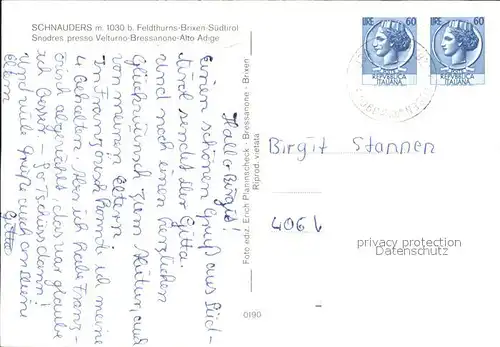 SCHNAUDERS m. 1030 b. Feldthurns-Brixen-Südtirol
Snodres presso Velturno-Bressanone-Alto Adige
Hallo Birgit!
Einen schönen Gruß aus Süd-
tirol sendet dir Gitta.
und noch einen herzlichen
Glückwunsch zum Abitur, auch
von meinen Eltern.
In Französisch konnte ich meine
4 behalten. Aber ich habe Franz-
ösisch abgewählt, das war glaube
ich besser. - So Tschüß dann!
Und viele Grüße auch an deine
Eltern
Gitta
Foto ediz. Erich Planinscheck - Bressanone - Brixen
Riprod. vietata
0190
LIRE 60
REPVBBLICA
ITALIANA
LIRE 60
REPVBBLICA
ITALIANA
Birgit Stannen
406
privacy protection
Datenschutz